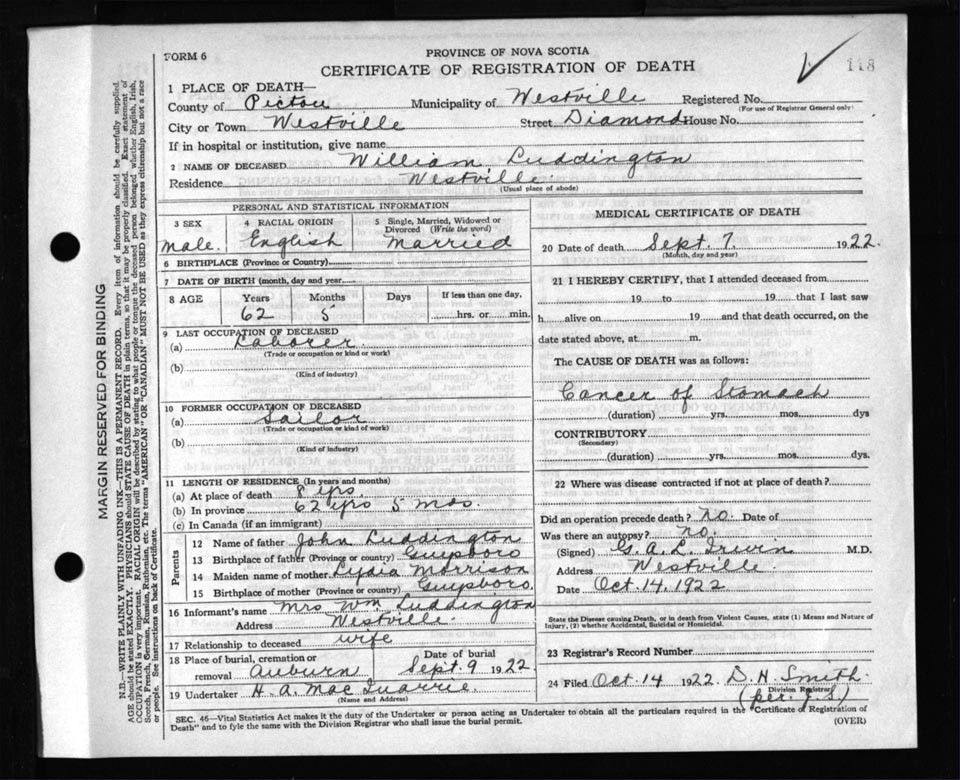 FORM 6
PROVINCE OF NOVA SCOTIA
CERTIFICATE OF REGISTRATION OF DEATH
118
1 PLACE OF DEATH—
County of Pictou Municipality of Westville Registered No.
(For use of Registrar General only)
City or Town Westville Street Diamond House No.
If in hospital or institution, give name
2 NAME OF DECEASED William Luddington
Residence Westville
(Usual place of abode)
PERSONAL AND STATISTICAL INFORMATION
3 SEX
Male.
4 RACIAL ORIGIN
English
5 Single, Married, Widowed or
Divorced (Write the word)
Married
6 BIRTHPLACE (Province or Country)
7 DATE OF BIRTH (month, day and year)
8 AGE Years Months Days If less than one day,
62 5 hrs. or min.
9 LAST OCCUPATION OF DECEASED
(a) Laborer
(Trade or occupation or kind or work)
(b)
(Kind of industry)
10 FORMER OCCUPATION OF DECEASED
(a) Sailor
(Trade or occupation or kind of work)
(b)
(Kind of industry)
11 LENGTH OF RESIDENCE (In years and months)
(a) At place of death 8 yrs.
(b) In province 62 yrs 5 mos.
(c) In Canada (if an immigrant)
Parents
12 Name of father John Luddington
13 Birthplace of father (Province or country) Guysboro
14 Maiden name of mother Lydia Morrison
15 Birthplace of mother (Province or country) Guysboro
16 Informant's name Mrs Wm. Luddington
Address Westville.
17 Relationship to deceased wife
18 Place of burial, cremation or
removal Auburn
Date of burial
Sept. 9 1922.
19 Undertaker H. A. Mac Quarrie.
(Name and Address)
MEDICAL CERTIFICATE OF DEATH
20 Date of death Sept. 7. 1922.
(Month, day and year)
21 I HEREBY CERTIFY, that I attended deceased from
19 to 19 that I last saw
h alive on 19 and that death occurred, on the
date stated above, at m.
The CAUSE OF DEATH was as follows:
Cancer of Stomach
(duration) yrs. mos. dys
CONTRIBUTORY
(Secondary)
(duration) yrs. mos. dys.
22 Where was disease contracted if not at place of death?
Did an operation precede death? no. Date of
Was there an autopsy? no.
(Signed) G. A. L. Irwin M.D.
Address Westville.
Date Oct. 14, 1922
State the Disease causing Death, or in death from Violent Causes, state (1) Means and Nature of
Injury, (2) whether Accidental, Suicidal or Homicidal.
23 Registrar's Record Number
24 Filed Oct. 14 1922. D. H. Smith
Division Registrar
SEC. 46—Vital Statistics Act makes it the duty of the Undertaker or person acting as Undertaker to obtain all the particulars required in the "Certificate of Registration of
Death" and to fyle the same with the Division Registrar who shall issue the burial permit.
(OVER)
MARGIN RESERVED FOR BINDING
N.B.—WRITE PLAINLY WITH UNFADING INK—THIS IS A PERMANENT RECORD. Every item of information should be carefully supplied.
AGE should be stated EXACTLY. PHYSICIANS should STATE CAUSE OF DEATH in plain terms, so that it may be properly classified. Exact statement of
OCCUPATION is very important. RACIAL ORIGIN will be described by stating to what people or tongue the deceased person belonged whether English, Irish,
Scotch, French, German, Russian, Ruthenian, etc. The terms "AMERICAN" OR "CANADIAN" MUST NOT BE USED as they express citizenship but not a race
or people. See instructions on back of Certificate.